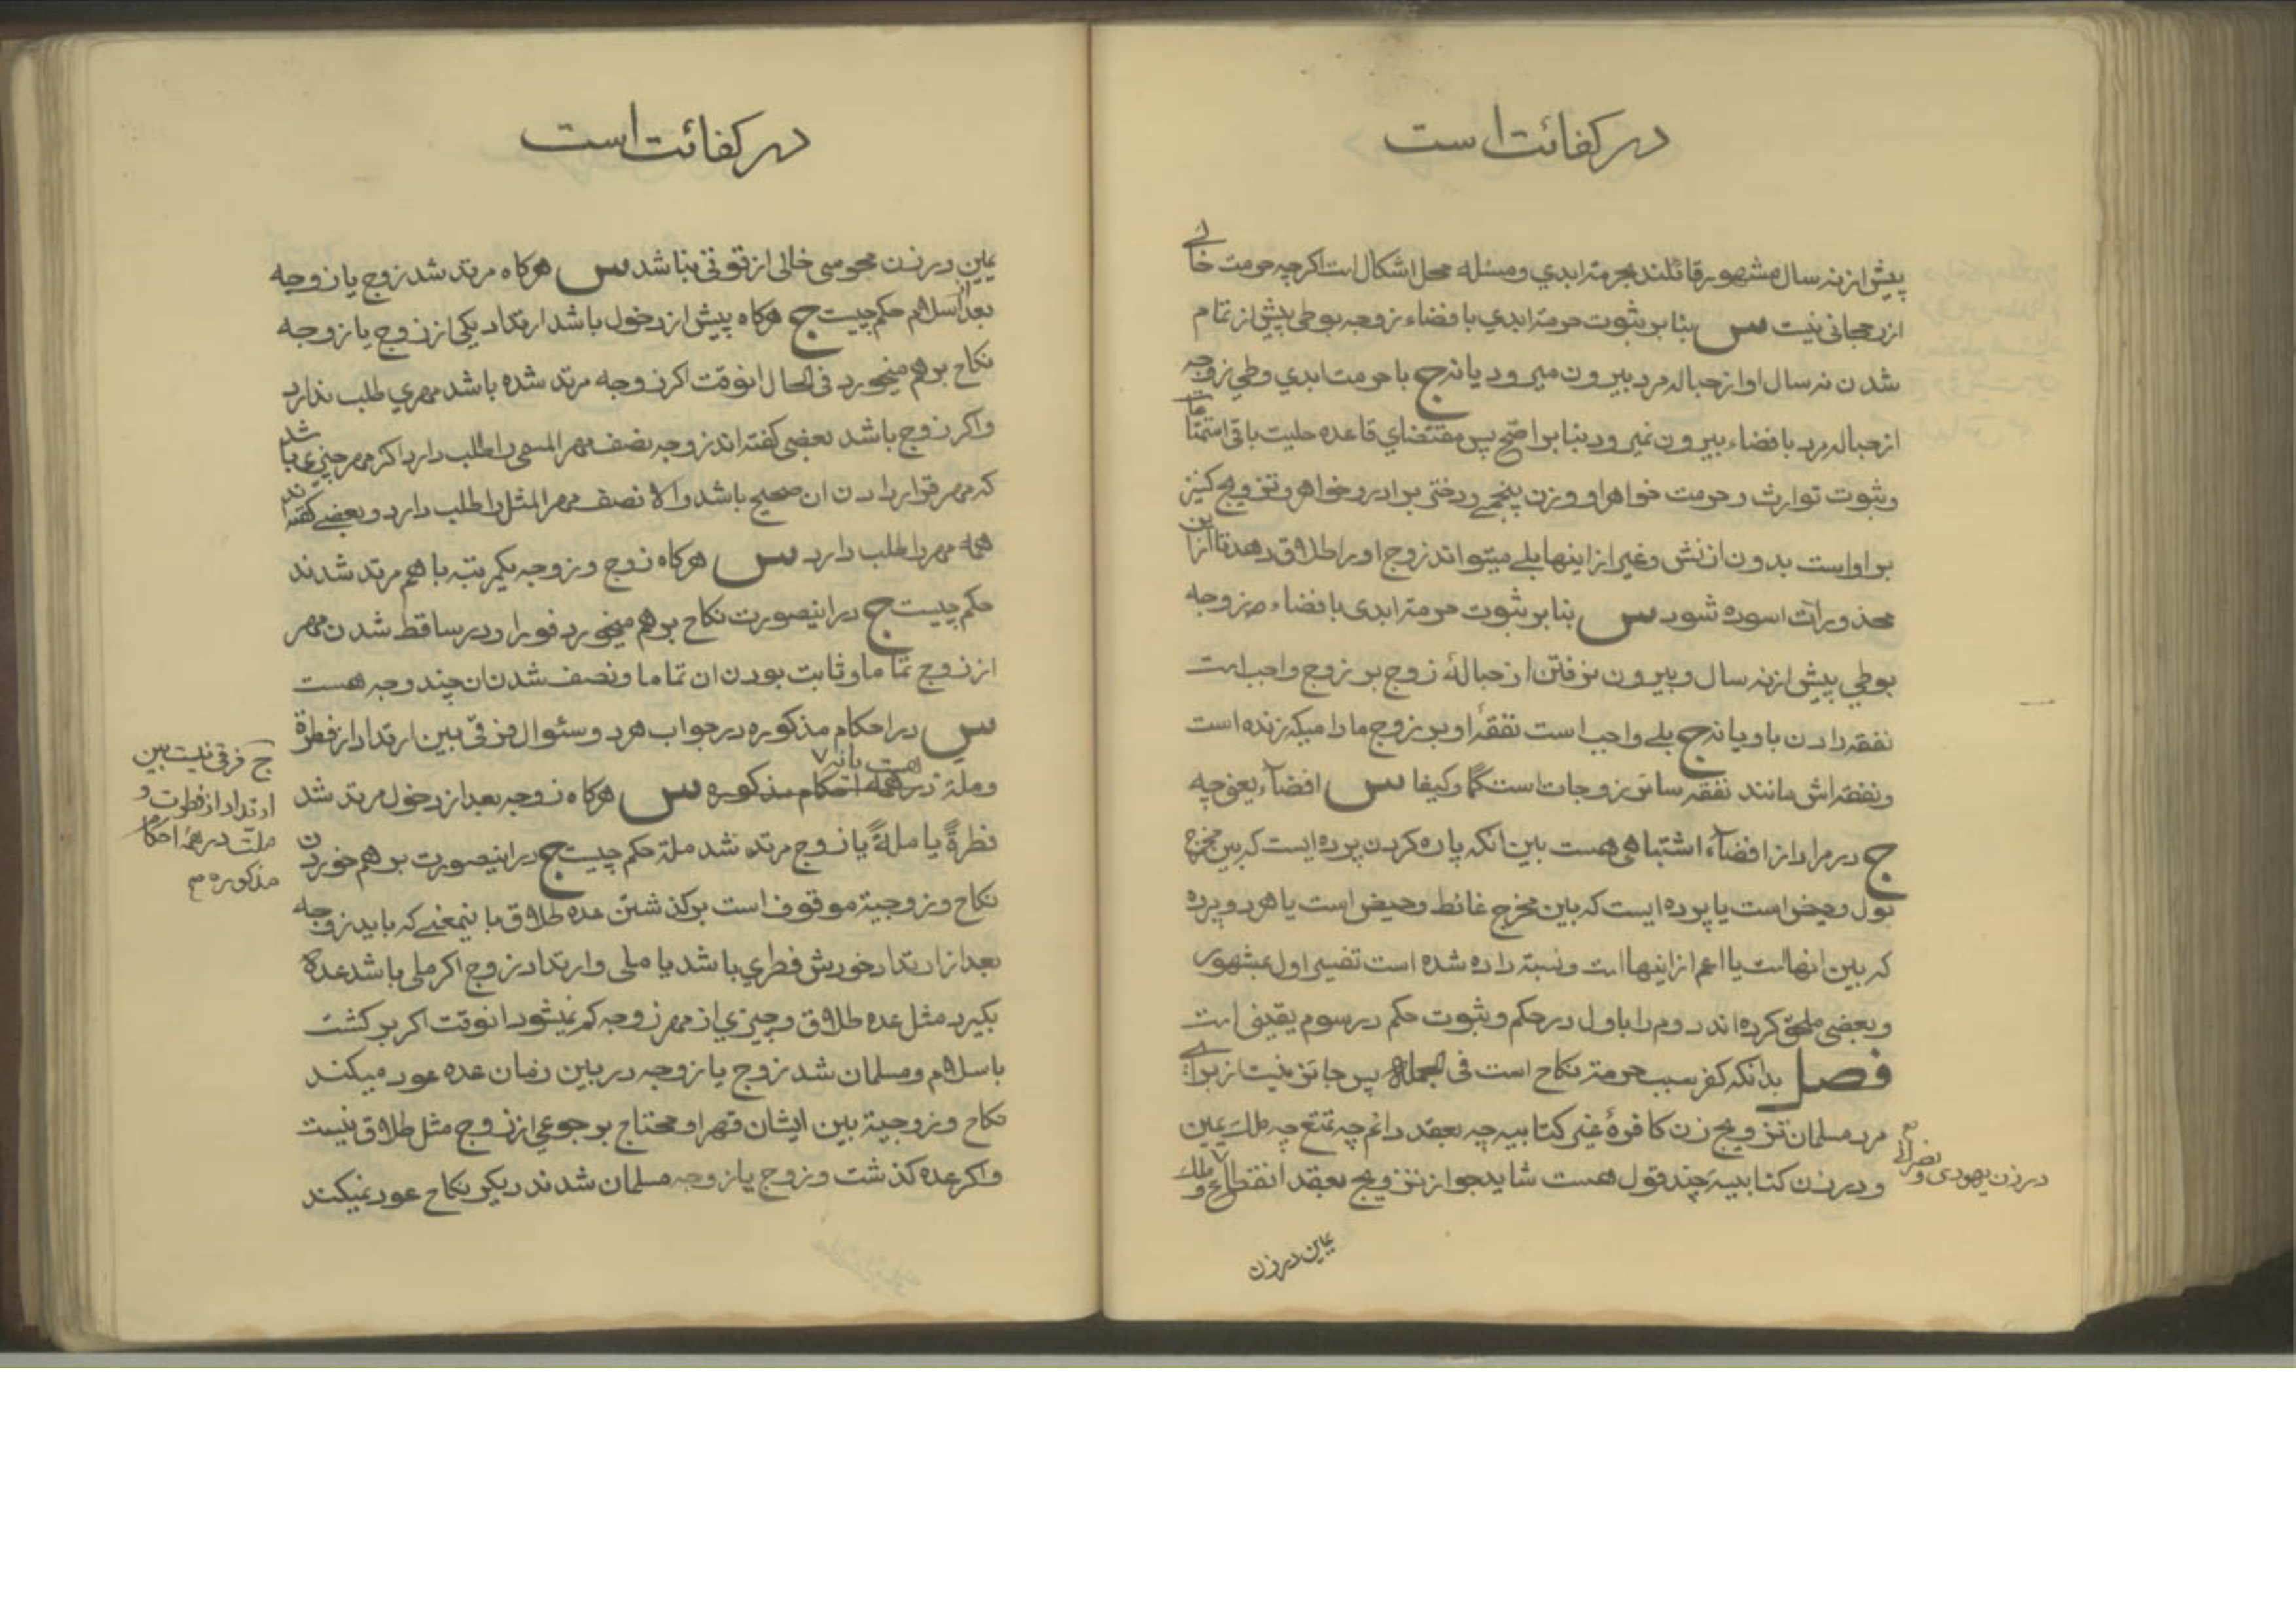 در کفائت است
پیش از نه سال مشهور قائلند بحرمة ابدي و مسئله محل اشکال است اکرچه حرمت خالے
از رجحانی نیست س بنا بر ثبوت حرمة ابدي بافضاء زوجه بوطی پیش از تمام
شدن نه سال او از حباله مرد بیرون میرود یا نه ج با حرمت ابدي وطی زوجه
از حباله مرد بافضاء بیرون نمیرود بنا بر اصح پس مقتضاي قاعده حلیت باقی استمتاعات
و ثبوت توارث و حرمت خواهر او و زن پنجمے و دختی برادر و خواهر و تزویج کنیز
بر او است بدون اذنش و غیر از اینها بلے میتواند زوج او را طلاق دهد تا از این
محذورات اسوده شود س بنا بر ثبوت حرمة ابدی بافضاء زوجه
بوطي پیش از نه سال و بیرون نرفتن از حبالۀ زوج بر زوج واجب است
نفقه دادن باو یا نه ج بلے واجب است نفقۀ او بر زوج مادامیکه زنده است
و نفقه اش مانند نفقه سائر زوجات است کما و کیفا س افضآء یعنی چه
ج در مراد از افضآء اشتباهی هست بین انکه پاره کردن پرده ایست که بین مخرج
بول و حیض است یا پرده ایست که بین مخرج غائط و حیض است یا هر دو پرده
که بین انهااست یا اعم از اینهااست و نسبة داده شده است تفسیر اول بمشهور
و بعضی ملحق کرده اند دوم را باول در حکم و ثبوت حکم در سوم یقینی است
فصل بدانکه کفر سبب حرمة نکاح است فی الجملة پس جائز نیست از براے
مرد مسلمان تزویج زن کافرۀ غیر کتابیه چه بعقد دائم چه تمتع چه ملك یمین
و در زن کتابیه چند قول هست شاید جواز تزویج بعقد انقطاع و ملك
در زن یهودی و نصرانے
یمین در زن
در کفائت است
یمین در زن مجوسی خالی از قوتی نباشد س هرکاه مرتد شد زوج یا زوجه
بعد از اسلام حکم چیست ج هرکاه پیش از دخول باشد ارتداد یکی از زوج یا زوجه
نکاح بر هم میخورد فی الحال انوقت اکر زوجه مرتد شده باشد مهري طلب ندارد
و اکر زوج باشد بعضی کفته اند زوجه نصف مهر المسمی را طلب دارد اکر مهر چیزی باشد
که مهر قرار دادن ان صحیح باشد و الا نصف مهر المثل را طلب دارد و بعضے کفته اند
همه مهر را طلب دارد س هرکاه زوج و زوجه یکمرتبه با هم مرتد شدند
حکم چیست ج در اینصورت نکاح بر هم میخورد فورا و در ساقط شدن مهر
از زوج تماما و ثابت بودن ان تماما و نصف شدن ان چند وجه هست
س در احکام مذکوره در جواب هر دو سئوال فرقی بین ارتداد از فطرة
و ملة هست یا نه در همه احکام مذکوره س هرکاه زوجه بعد از دخول مرتد شد
فطرةً یا ملةً یا زوج مرتد شد ملة حکم چیست ج در اینصورت بر هم خوردن
نکاح و زوجیة موقوف است بر کذشتن عده طلاق باینمعنے که باید زوجه
بعد از ارتداد خودش فطري باشد یا ملی و ارتداد زوج اکر ملی باشد عده
بکیرد مثل عده طلاق و چیزي از مهر زوجه کم نمیشود انوقت اکر برکشت
باسلام و مسلمان شد زوج یا زوجه در بین زمان عده عود میکند
نکاح و زوجیة بین ایشان قهرا و محتاج برجوعي از زوج مثل طلاق نیست
و اکر عده کذشت و زوج یا زوجه مسلمان شدند دیکر نکاح عود نمیکند
ج فرقی نیست بین
ارتداد از فطرت و
ملت در همۀ احکام
مذکوره